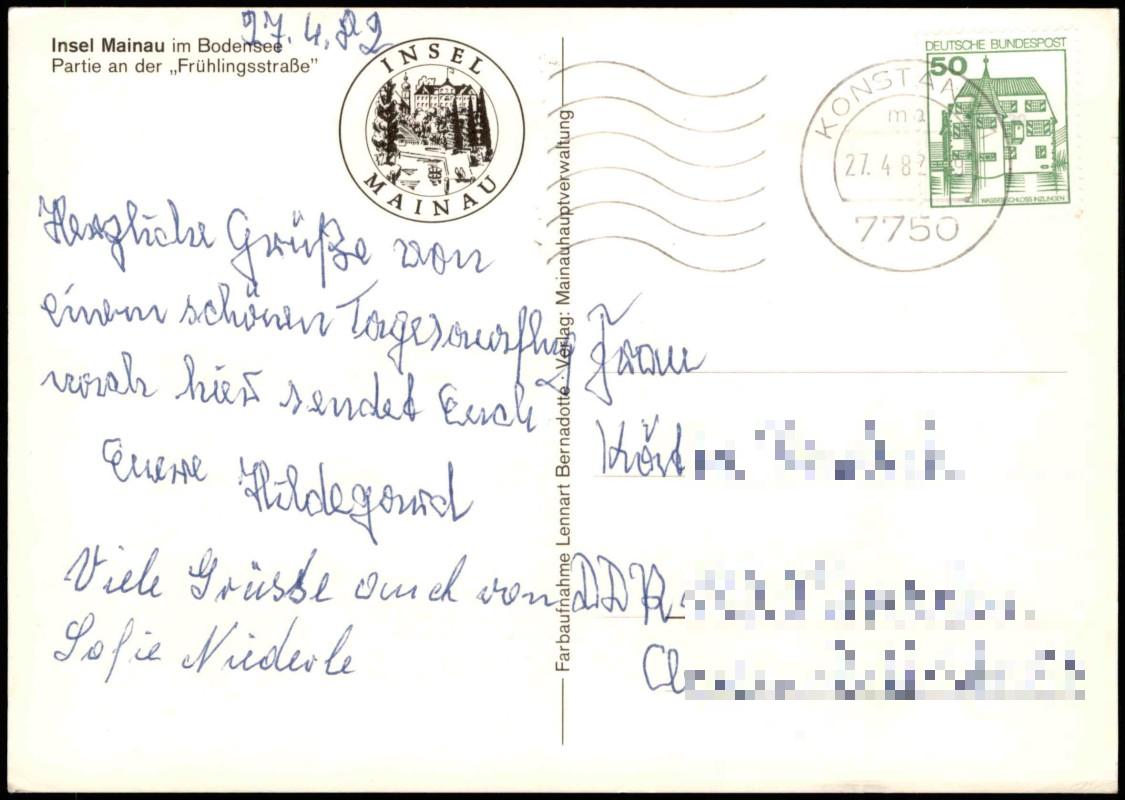 27.4.82
Insel Mainau im Bodensee
Partie an der „Frühlingsstraße”
INSEL
MAINAU
Herzliche Grüße von
einem schönen Tagesausflug
nach hier sendet Euch
Euere Hildegard
Viele Grüsse auch von
Sofie Niederle
Farbaufnahme Lennart Bernadotte · Verlag: Mainauhauptverwaltung
KONSTAN
ma
27.4.82
7750
DEUTSCHE BUNDESPOST
50
WASSERSCHLOSS INZLINGEN
Frau
DDR